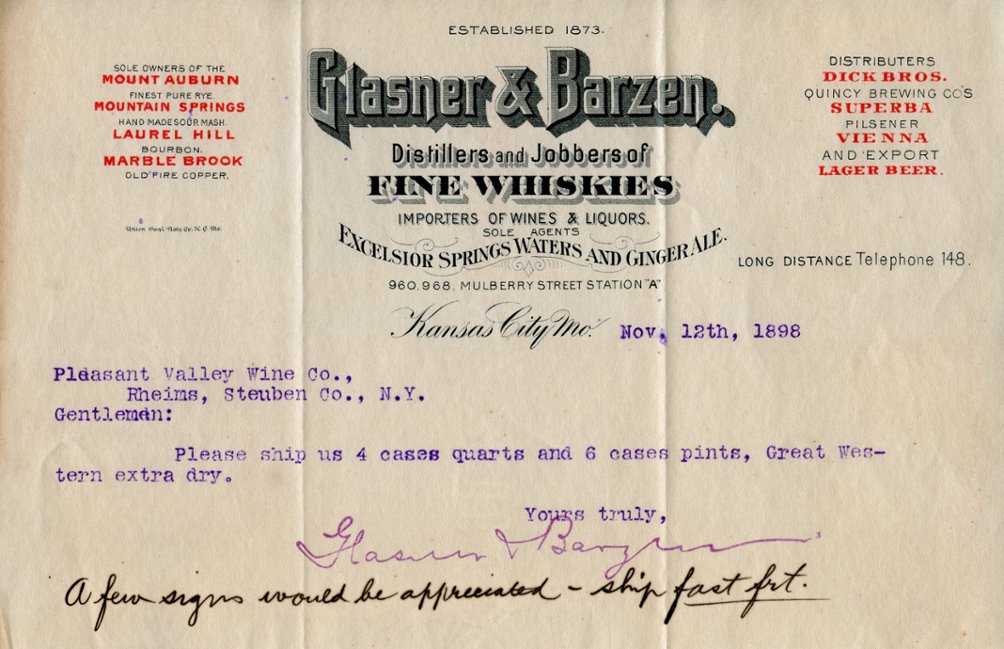 ESTABLISHED 1873.
Glasner & Barzen.
Distillers and Jobbers of
FINE WHISKIES
IMPORTERS OF WINES & LIQUORS.
SOLE AGENTS
EXCELSIOR SPRINGS WATERS AND GINGER ALE.
960, 968, MULBERRY STREET STATION "A"
SOLE OWNERS OF THE
MOUNT AUBURN
FINEST PURE RYE
MOUNTAIN SPRINGS
HAND MADE SOUR MASH.
LAUREL HILL
BOURBON.
MARBLE BROOK
OLD FIRE COPPER.
Union Bank Note Co. K. C. Mo.
DISTRIBUTERS
DICK BROS.
QUINCY BREWING CO'S
SUPERBA
PILSENER
VIENNA
AND EXPORT
LAGER BEER.
LONG DISTANCE Telephone 148.
Kansas City Mo. Nov. 12th, 1898
Pleasant Valley Wine Co.,
Rheims, Steuben Co., N.Y.
Gentlemen:
Please ship us 4 cases quarts and 6 cases pints, Great Wes-
tern extra dry.
Yours truly,
Glasner & Barzen
A few signs would be appreciated - ship fast frt.